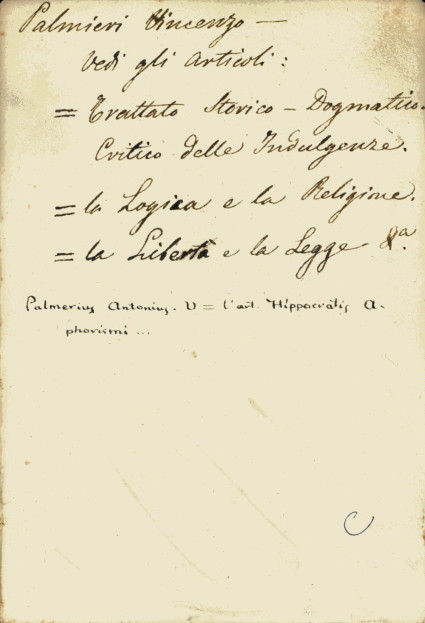 Palmieri Vincenzo —
Vedi gli articoli :
= Trattato Storico – Dogmatico.
Critico delle Indulgenze.
= la Logica e la Religione.
= la Libertà e la Legge 8.ª
Palmerius Antonius. V = l'art. Hippocratis A-
phorismi ...
C